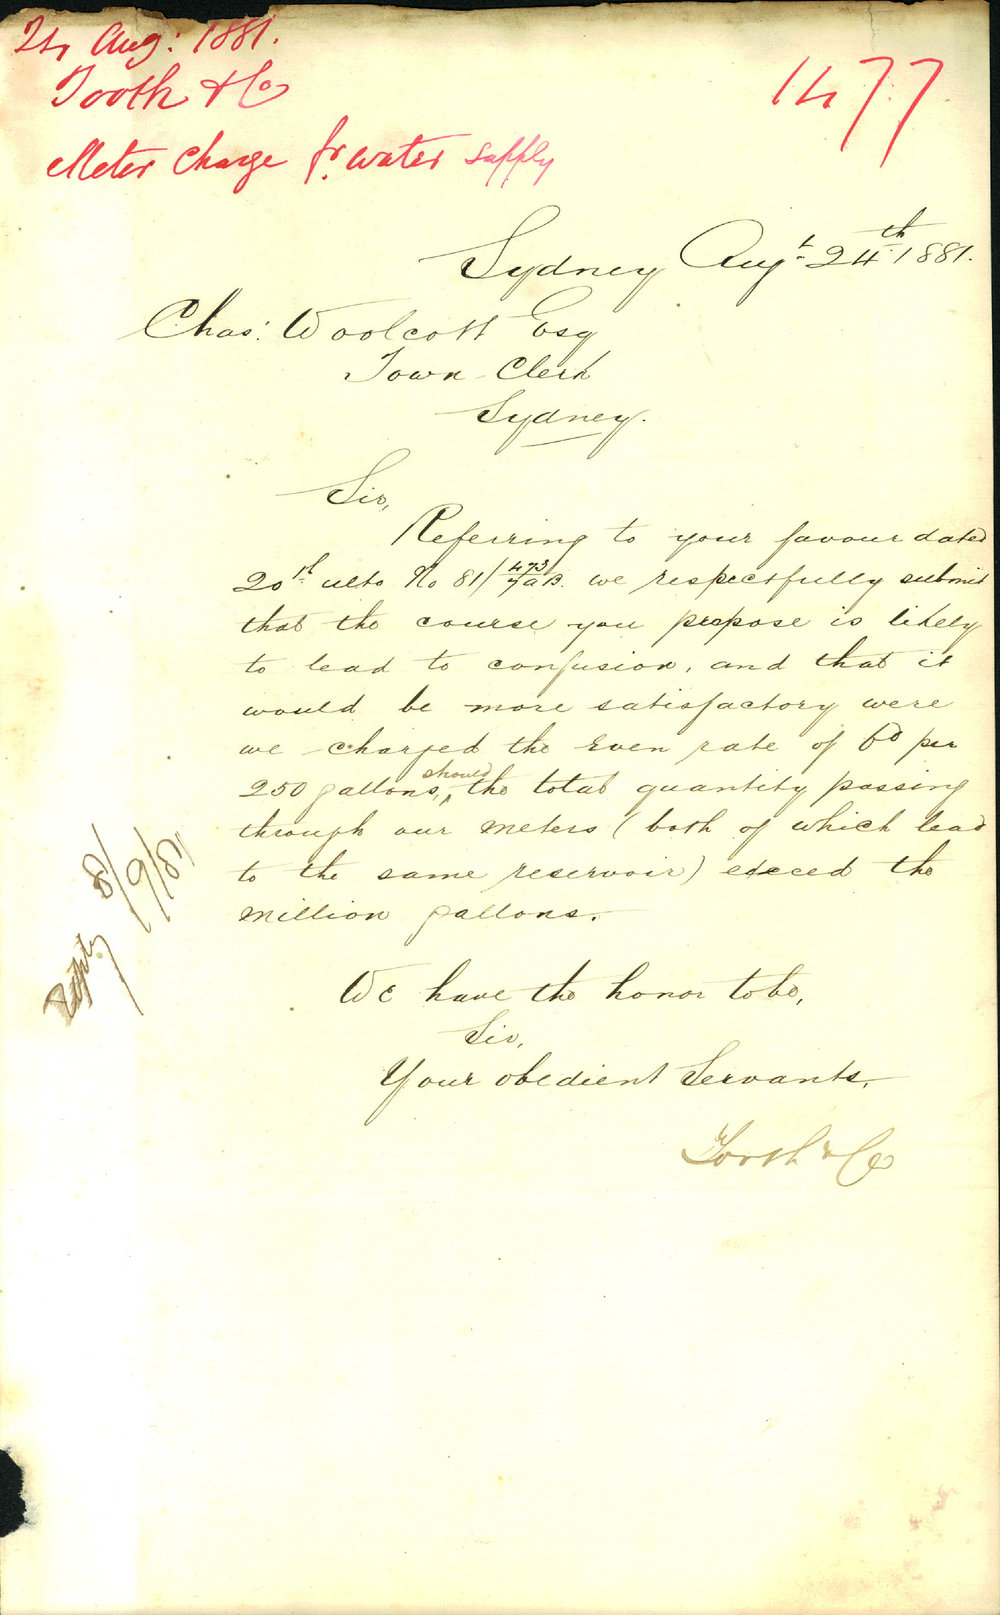 24 Aug: 1881.
Tooth & Co
Meter Charge fr. water supply
1477
Sydney Augt. 24th 1881.
Chas: Woolcott Esq
Town Clerk
Sydney.
Sir,
Referring to your favour dated
20th ulto No 81/473 we respectfully submit
that the course you propose is likely
to lead to confusion, and that it
would be more satisfactory were
we charged the even rate of 6d per
250 gallons, should the total quantity passing
through our meters (both of which lead
to the same reservoir) exceed the
million gallons.
We have the honor to be,
Sir,
Your obedient Servants,
Tooth & Co
Reply 8/9/81